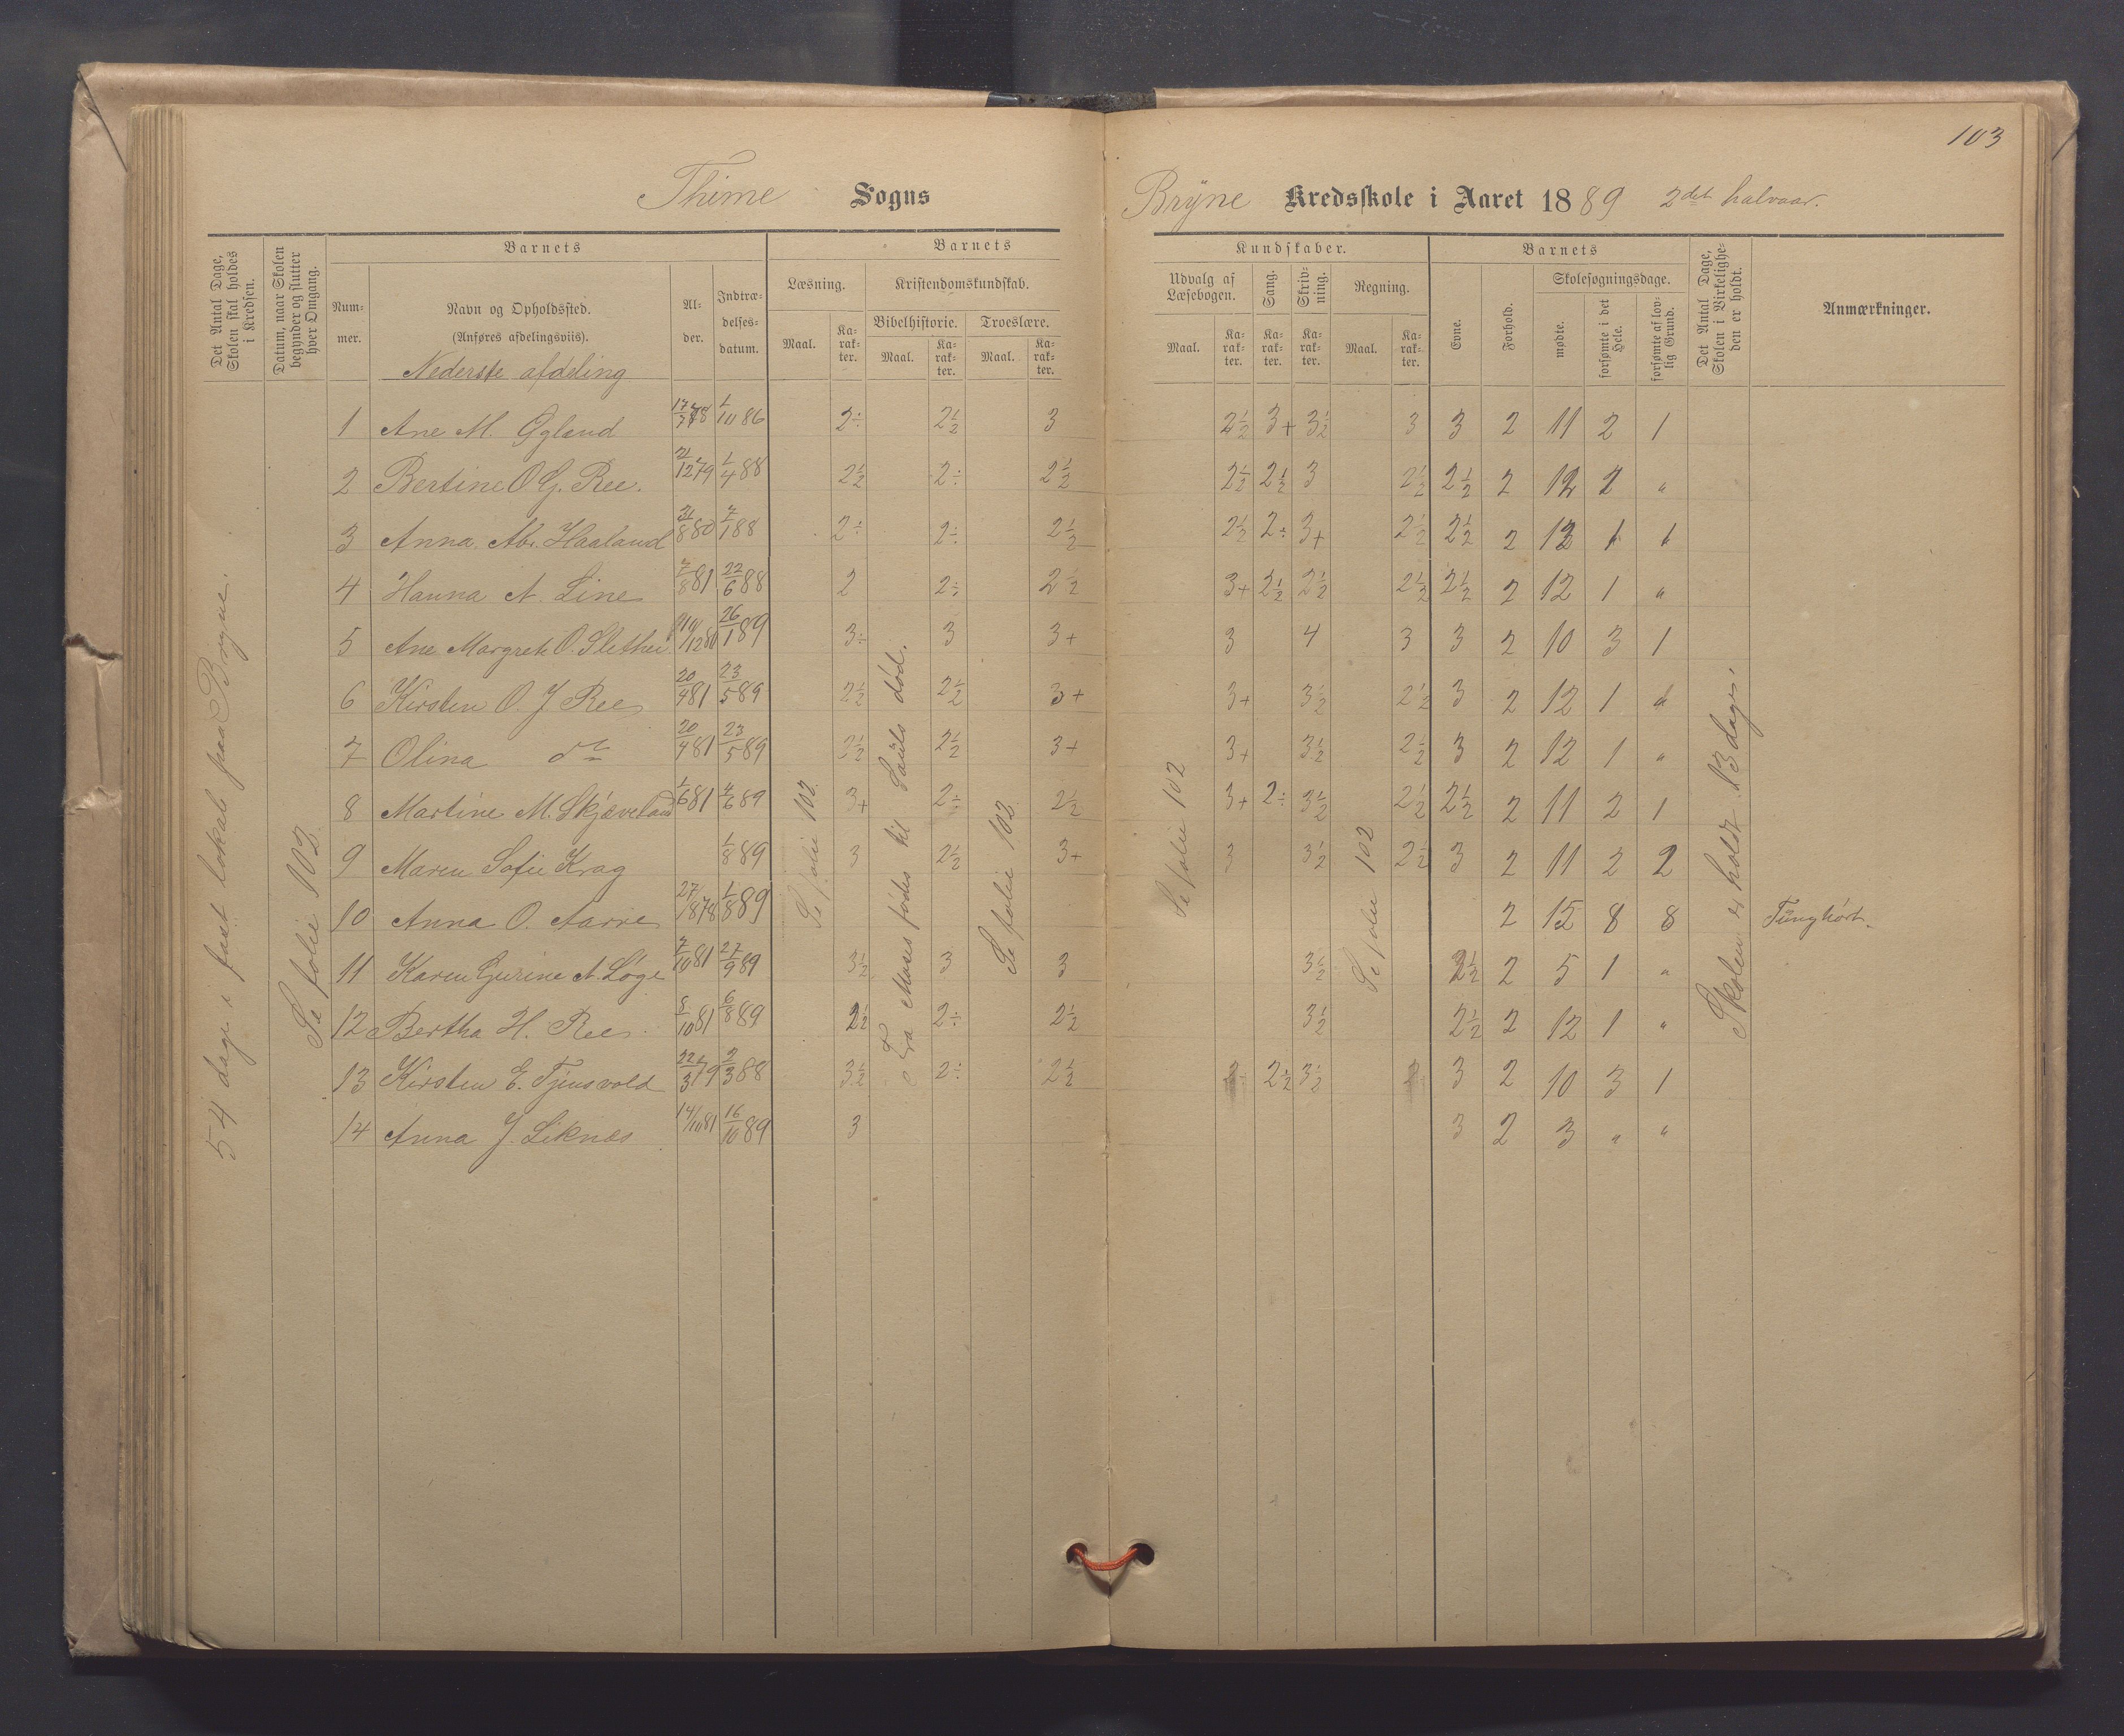 103
Thime Sogns Bryne Kredsskole i Aaret 1889 2det halvaar.
Det Antal Dage, Skolen skal holdes i Kredsen.
Datum, naar Skolen begynder og slutter hver Omgang.
Barnets
Barnets
Kundskaber.
Barnets
Det Antal Dage, Skolen i Virkeligheden er holdt.
Anmærkninger.
Nummer.
Navn og Opholdssted.
(Anføres afdelingsviis).
Nederste afdeling
Alder.
Indtrædelsesdatum.
Læsning.
Kristendomskundskab.
Bibelhistorie.
Troeslære.
Maal.
Karakter.
Maal.
Karakter.
Maal.
Karakter.
Udvalg af Læsebogen.
Sang.
Skrivning.
Regning.
Maal.
Karakter.
Karakter.
Karakter.
Maal.
Karakter.
Evne.
Forhold.
Skolesøgningsdage.
mødte.
forsømte i det Hele.
forsømte af lovlig Grund.
54 dage i fast lokale paa Bryne.
Se folie 102.
Se folie 102
Fra Moses fødes til Sauls død.
Se folie 102
Se folie 102
Se folie 102
Skolen er holdt 13 dage.
1 Ane M. Øgland 1/10 86 2÷ 2½ 3 2½ 3+ 3½ 3 3 2 11 2 1
2 Bertine O G. Ree. 21/12 79 1/4 88 2½ 2÷ 2½ 2½ 2½ 3 2½ 2½ 2 12 1 "
3 Anna Abr. Haaland 31/8 80 7/1 88 2÷ 2÷ 2½ 2½ 2÷ 3+ 2½ 2½ 2 12 1 1
4 Hanna A. Line 7/8 81 22/6 88 2 2÷ 2½ 3+ 2½ 2½ 2½ 2½ 2 12 1 "
5 Ane Margrete O. Slethei 26/1 89 3÷ 3 3+ 3 4 3 3 2 10 3 1
6 Kirsten O. J. Ree 20/4 81 23/5 89 2½ 2½ 3+ 3+ 3½ 2½ 3 2 12 1 "
7 Olina do 20/4 81 23/5 89 2½ 2½ 3+ 3+ 3½ 2½ 3 2 12 1 "
8 Martine M. Skjæveland 1/6 81 4/6 89 3+ 2÷ 2½ 3+ 2÷ 3½ 2½ 2½ 2 11 2 1
9 Maren Sofie Krag 1/8 89 3 2½ 3+ 3 3½ 2½ 3 2 11 2 2
10 Anna O. Aarre 27/1878 1/8 89 2 15 8 8 Tunghørt.
11 Karen Gurine A. Løge 7/10 81 27/9 89 3½ 3 3 3½ 2½ 2 5 1 "
12 Bertha H. Ree 5/10 81 6/8 89 2½ 2÷ 2½ 3½ 2½ 2 12 1 "
13 Kirsten E. Tjensvold 22/3 79 2/3 88 3½ 2÷ 2½ 2½ 3½ 3 2 10 3 1
14 Anna J. Liknæs 14/10 81 16/10 89 3 3 2 3 " "